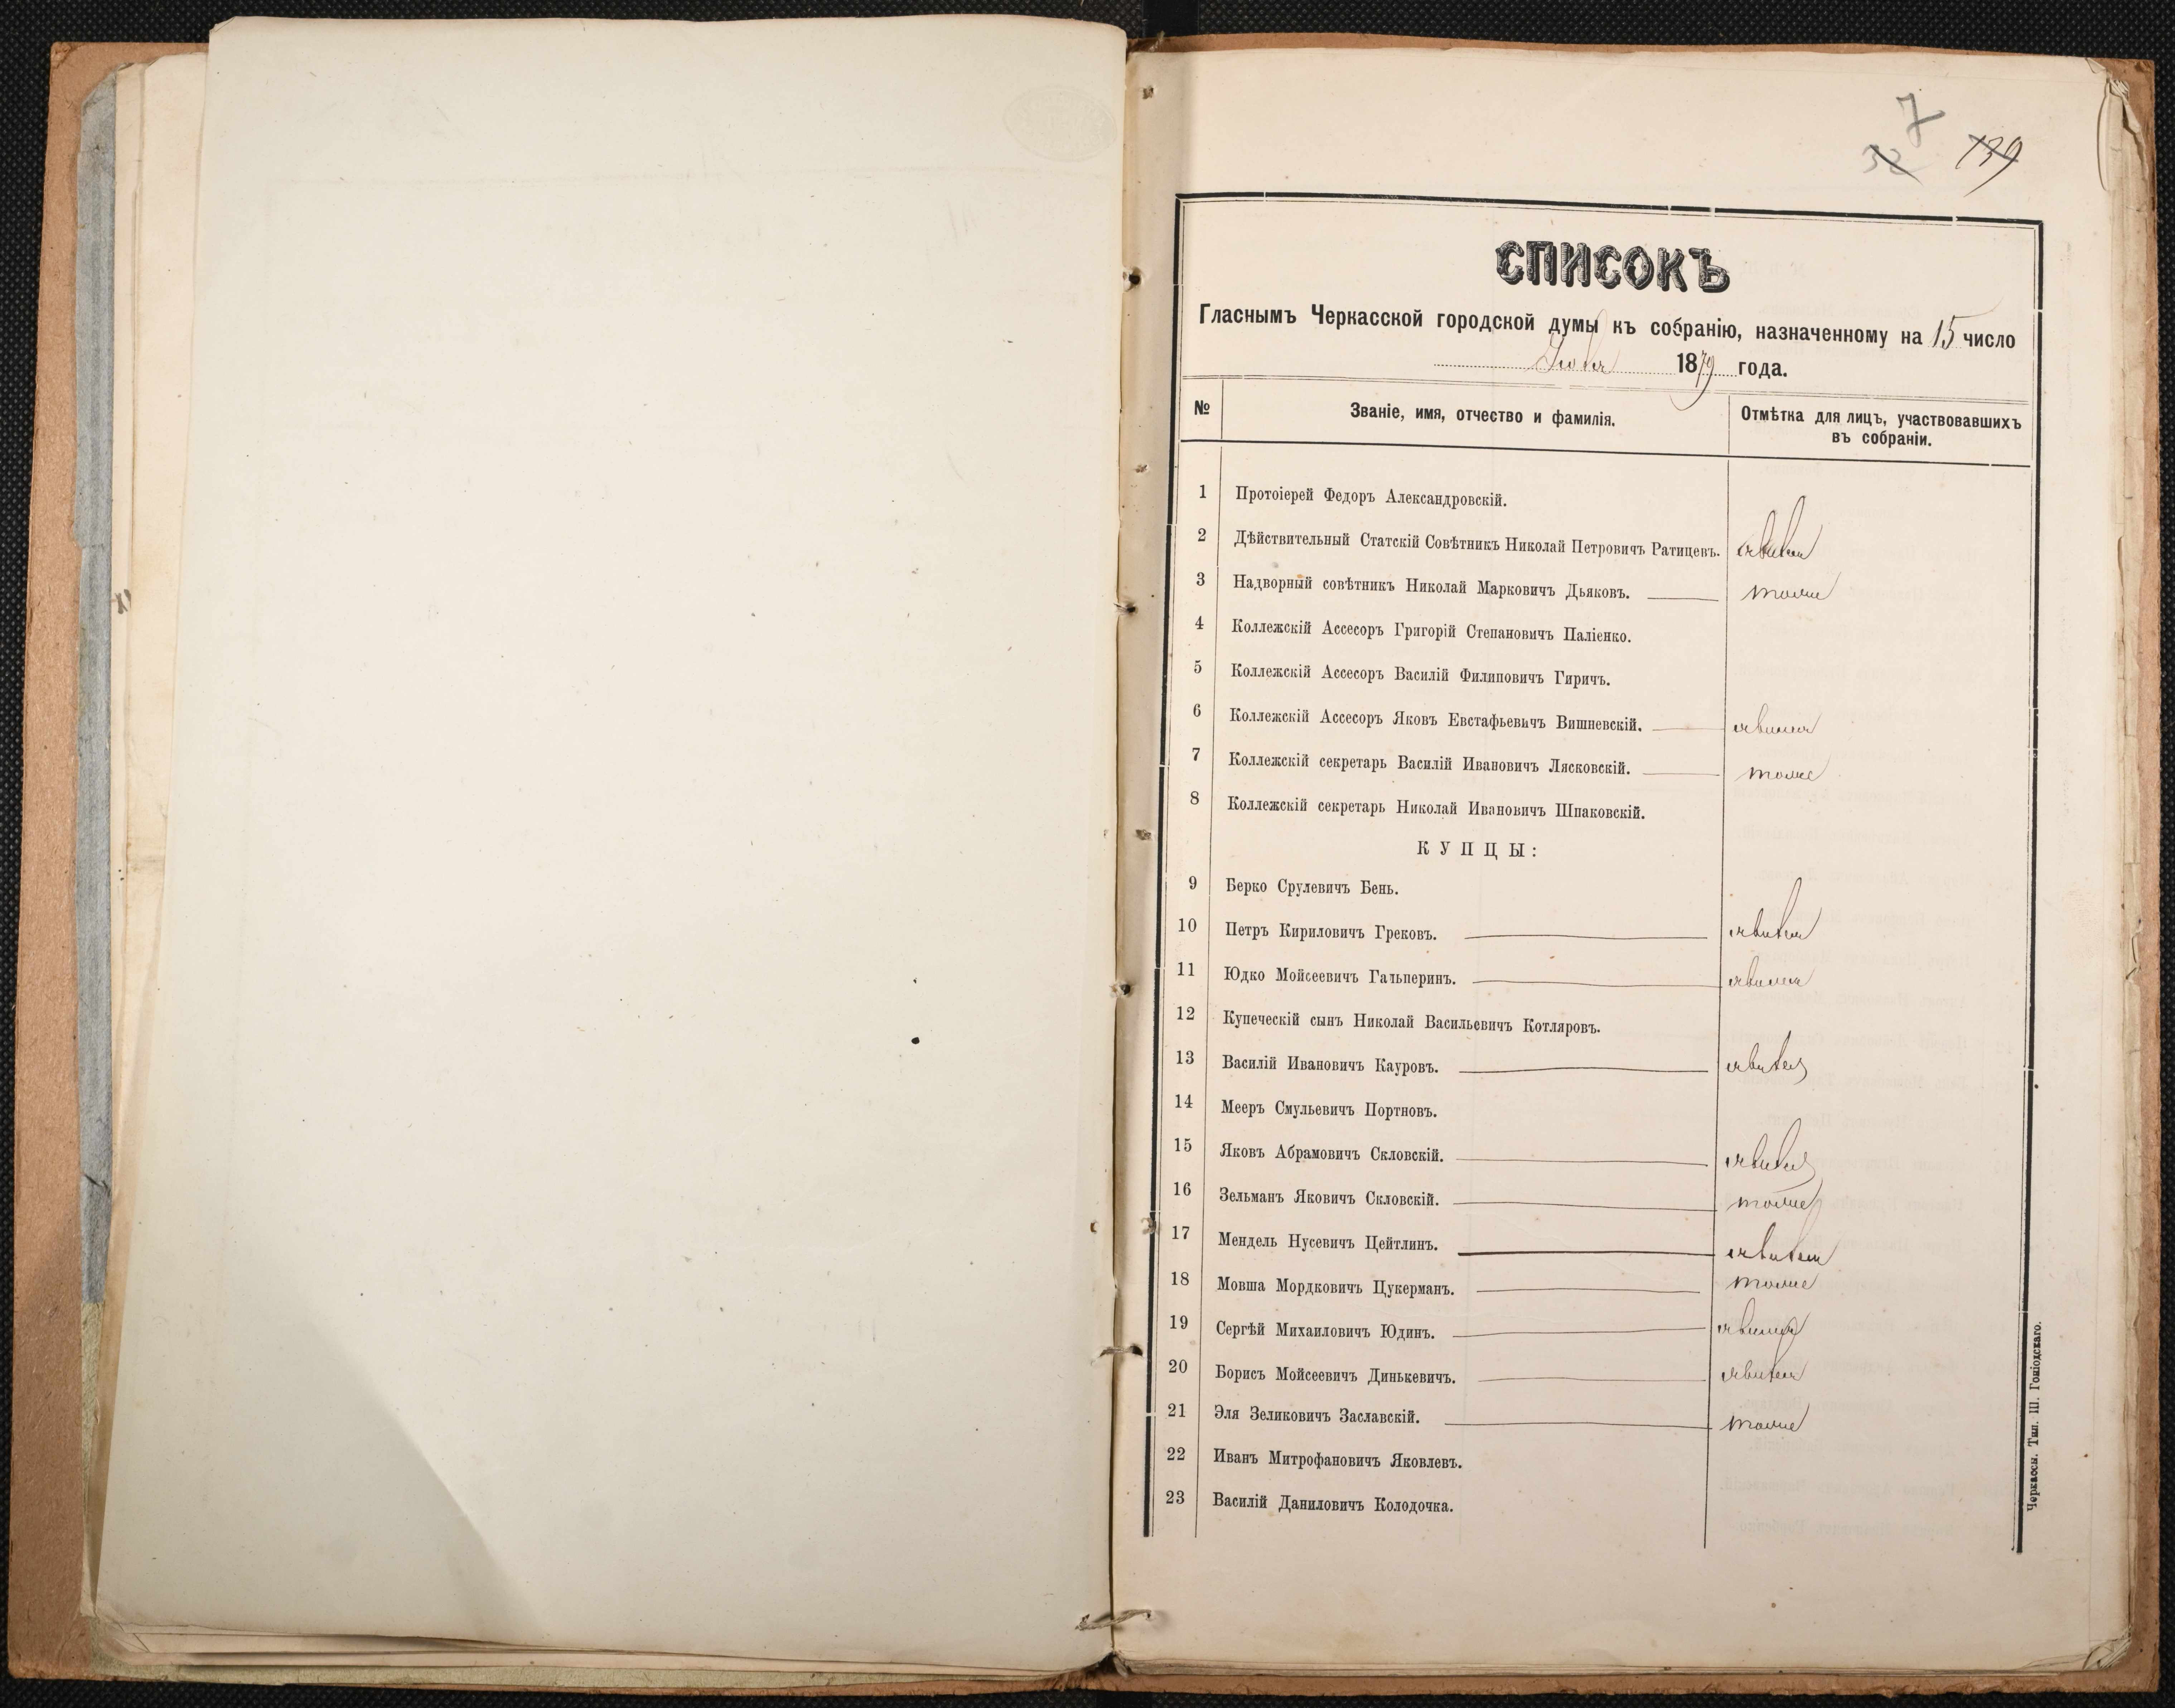 7
32 139
СПИСОКЪ
Гласнымъ Черкасской городской думы къ собранію, назначенному на 15 число
1879 года.
№ Званіе, имя, отчество и фамилія. Отмѣтка для лицъ, участвовавшихъ
въ собраніи.
1 Протоіерей Федоръ Александровскій.
2 Дѣйствительный Статскій Совѣтникъ Николай Петровичъ Ратицевъ. явился
3 Надворный совѣтникъ Николай Марковичъ Дьяковъ. тоже
4 Коллежскій Ассесоръ Григорій Степановичъ Паліенко.
5 Коллежскій Ассесоръ Василій Филиповичъ Гиричъ.
6 Коллежскій Ассесоръ Яковъ Евстафьевичъ Вишневскій. явился
7 Коллежскій секретарь Василій Ивановичъ Лясковскій. тоже
8 Коллежскій секретарь Николай Ивановичъ Шпаковскій.
КУПЦЫ:
9 Берко Срулевичъ Бень.
10 Петръ Кириловичъ Грековъ. явился
11 Юдко Мойсеевичъ Гальперинъ. явился
12 Купеческій сынъ Николай Васильевичъ Котляровъ.
13 Василій Ивановичъ Кауровъ. явился
14 Мееръ Смульевичъ Портновъ.
15 Яковъ Абрамовичъ Скловскій. явился
16 Зельманъ Яковичъ Скловскій. тоже
17 Мендель Нусевичъ Цейтлинъ. явился
18 Мовша Мордковичъ Цукерманъ. тоже
19 Сергѣй Михаиловичъ Юдинъ. явился
20 Борисъ Мойсеевичъ Динькевичъ. явился
21 Эля Зеликовичъ Заславскій. тоже
22 Иванъ Митрофановичъ Яковлевъ.
23 Василій Даниловичъ Колодочка.
Черкассы. Тип. Ш. Гоніодскаго.